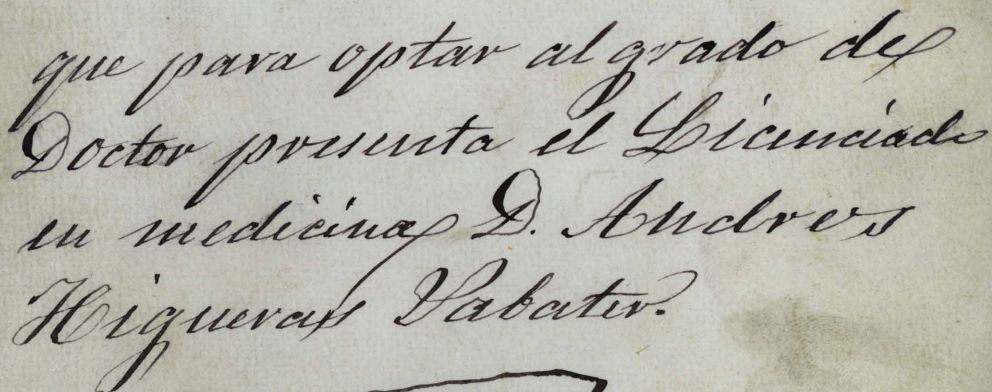 que para optar al grado de
Doctor presenta el Licenciado
en medicina D. Andres
Higueras Sabater.